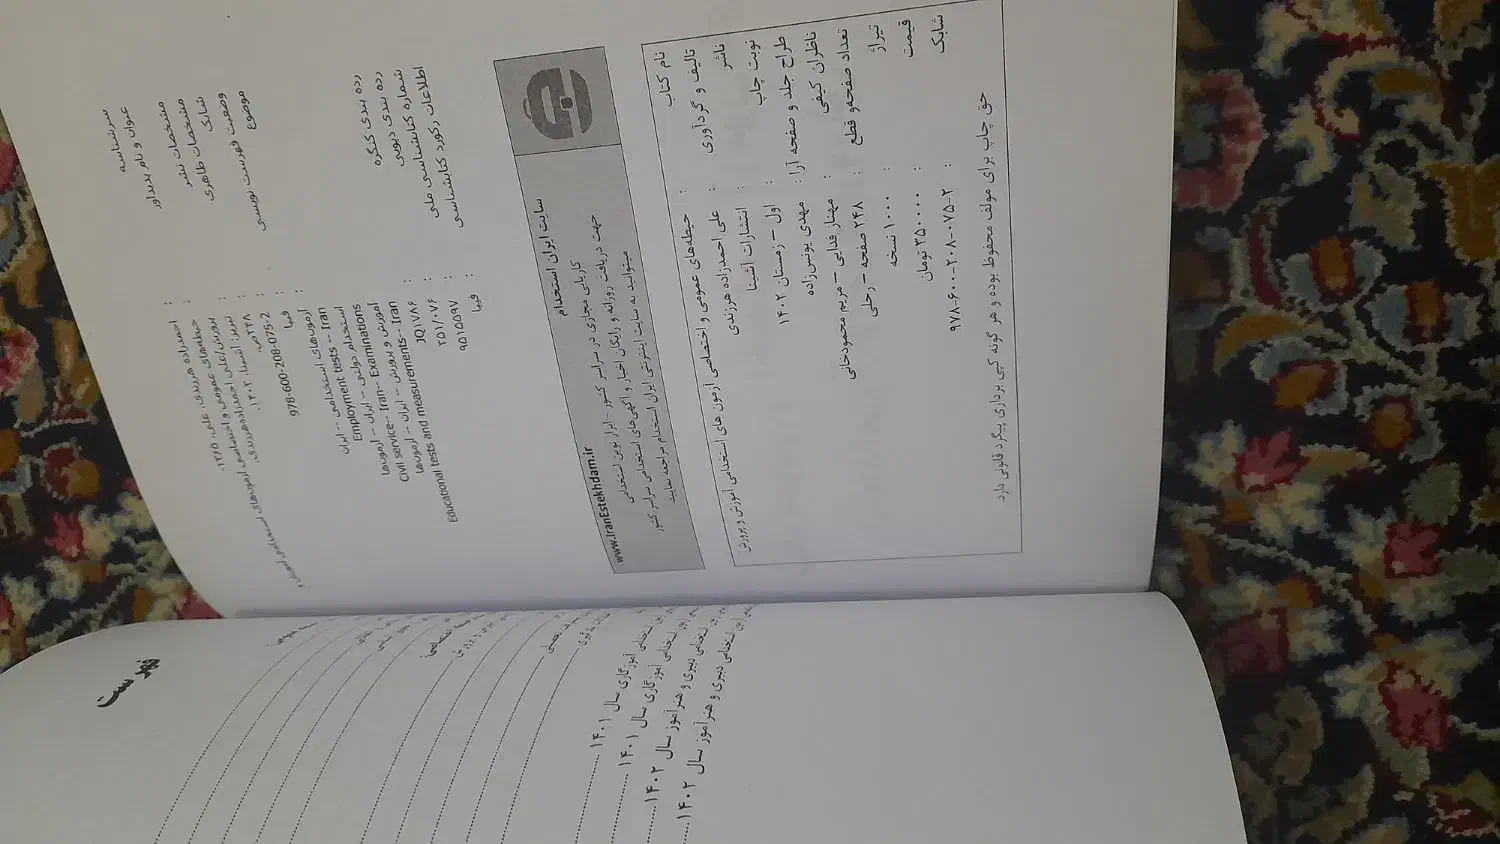 سرشناسه : احمدزاده هرزندی، علی، ۱۳۶۵.
عنوان و نام پدیدآور : حیطه‌های عمومی و اختصاصی آزمون‌های استخدامی آموزش و
پرورش/علی احمدزاده‌هرزندی.
مشخصات نشر : تبریز: آشینا، ۱۴۰۲.
مشخصات ظاهری : ۲۴۸ص.
شابک : 978-600-208-075-2
وضعیت فهرست نویسی : فیپا
موضوع : آزمون‌های استخدامی -- ایران
Employment tests -- Iran
استخدام دولتی -- ایران -- آزمون‌ها
Civil service-- Iran-- Examinations
آموزش و پرورش -- ایران -- آزمون‌ها
Educational tests and measurements-- Iran
رده بندی کنگره : JQ۱۷۸۶
رده بندی دیویی : ۳۵۱/۰۷۶
شماره کتابشناسی ملی : ۹۵۱۵۵۹۷
اطلاعات رکورد کتابشناسی : فیپا
سایت ایران استخدام
www.IranEstekhdam.ir
کاریابی مجازی در سراسر کشور - ابزار نوین استخدامی
جهت دریافت روزانه و رایگان اخبار و آگهی‌های استخدامی سراسر کشور
میتوانید به سایت اینترنتی ایران استخدام مراجعه نمایید
نام کتاب : حیطه‌های عمومی و اختصاصی آزمون های استخدامی آموزش و پرورش
تالیف و گردآوری : علی احمدزاده هرزندی
ناشر : انتشارات آشینا
نوبت چاپ : اول – زمستان ۱۴۰۲
طراح جلد و صفحه آرا : مهدی یونس‌زاده
ناظران کیفی : مهناز فدایی – مریم محمودخانی
تعداد صفحه‌و قطع : ۲۴۸ صفحه – رحلی
تیراژ : ۱۰۰۰ نسخه
قیمت : ۳۵۰۰۰۰ تومان
شابک : ۹۷۸-۶۰۰-۲۰۸-۰۷۵-۲
حق چاپ برای مولف محفوظ بوده و هر گونه کپی برداری پیگرد قانونی دارد.
فهرست
استخدامی آموزگاری سال ۱۴۰۱
استخدامی آموزگاری سال ۱۴۰۱
استخدامی دبیری و هنرآموز سال ۱۴۰۲
استخدامی دبیری و هنرآموز سال ۱۴۰۲